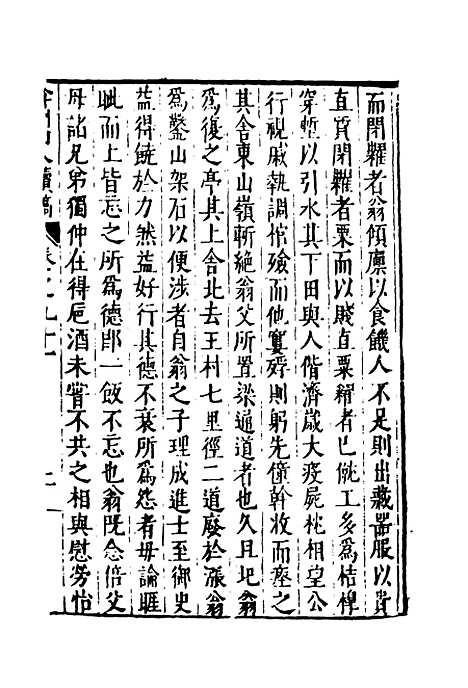 而閉糴者翁傾廪以食饑人不足則出藏器服以貴
直質閉糴者栗而以賤直粟糴者已僦工多為桔橰
穿塹以引水其下田與人偕濟歲大疫屍枕相望公
行視戚執調棺殮而他寠殍則躬先僮幹收而瘞之
其舍東山嶺斬絕翁父所置梁通道者也久且圯翁
為復之亭其上舍北去王村七里徑二道廢於漲翁
為鑿山架石以便涉者自翁之子理成進士至御史
益得饒於力然益好行其德不衰所為怨者毋論睚
眦而上皆忘之所為德即一飯不忘也翁旣念倍父
母諸兄弟獨仲在得巵酒未甞不共之相與慰劳怡
弇州山人續稿 卷之九十一